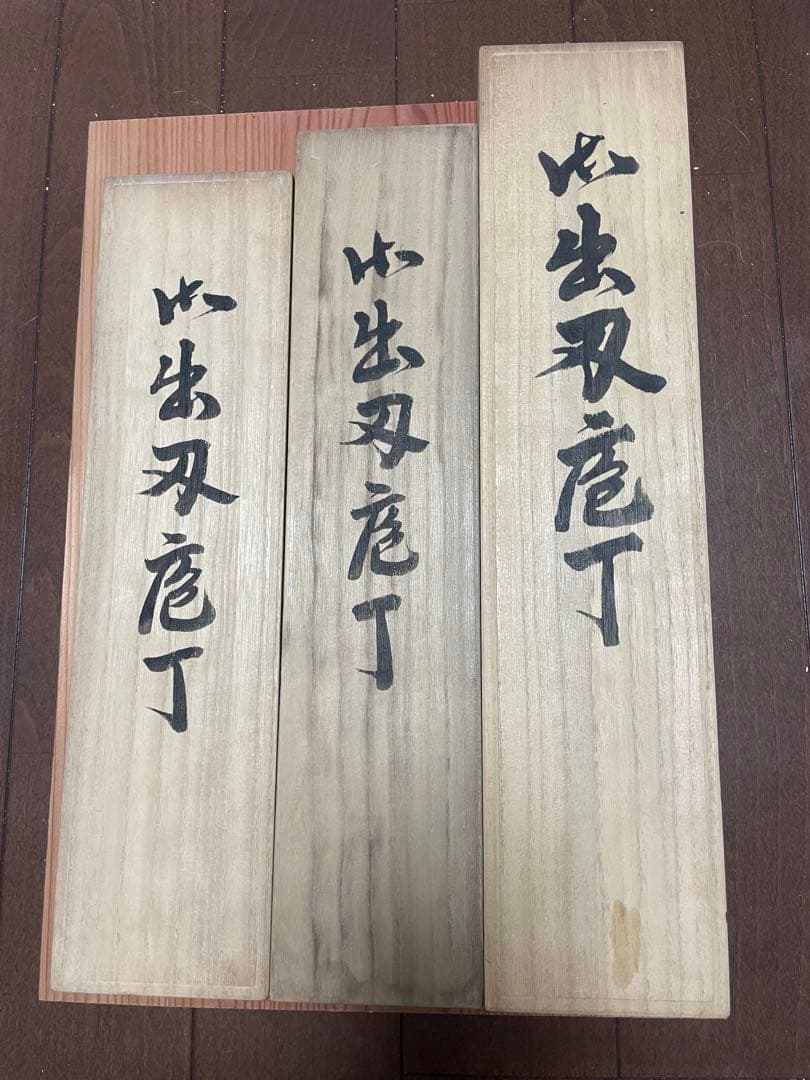 御出刃庖丁
御出刃庖丁
御出刃庖丁